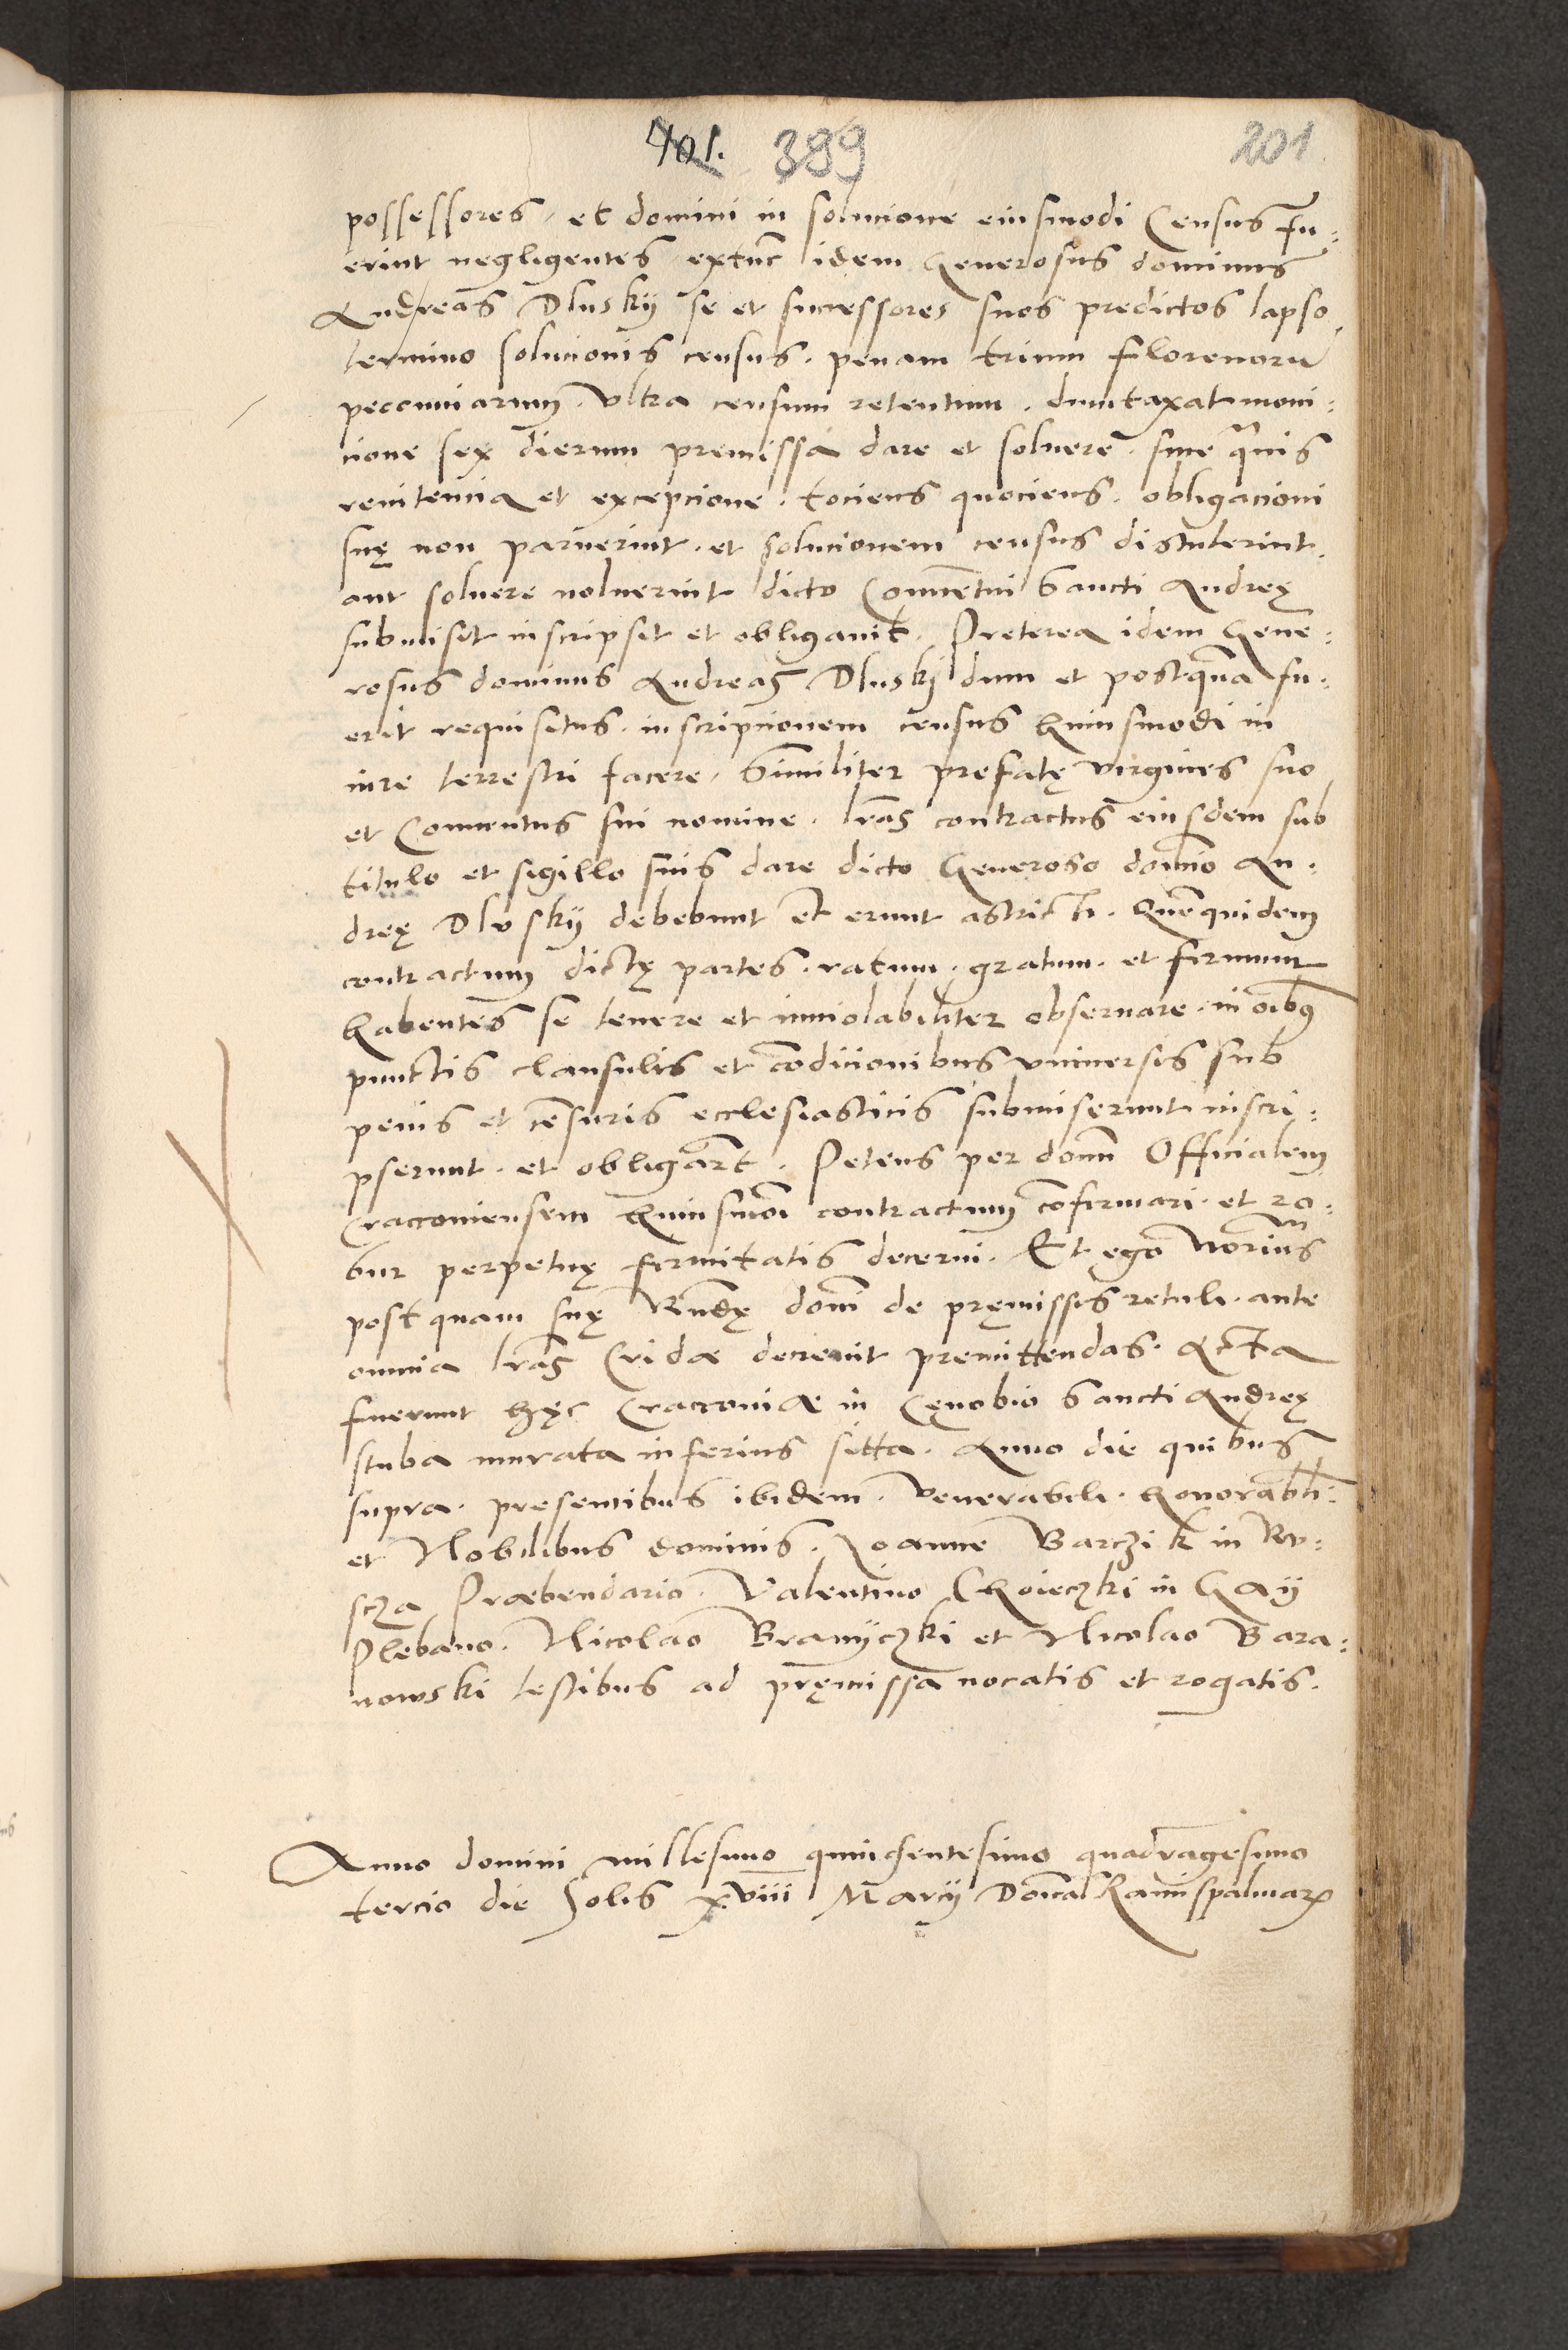 401. 399 201
possessores, et domini in solucione eiusmodi Census fu:
erint negligentes extu͂c idem Generosus dominus
Andreas Dlusky se et successores suos predictos lapso
termino solucionis census. penam trium florenoru͂
peccuniarum. vltra censum retentum. dumtaxat moni:
cione sex dierum premissa dare et soluere. sine quis
renitencia et excepcione. tociens quociens. obligacioni
suę non paruerint. et solucionem census distulerint.
aut soluere noluerint dicto Conue͂tui Sancti Andreę
submisit inscripsit et obligauit. Preterea idem Gene:
rosus dominus Andreas Dluskÿ dum et postqua͂ fu:
erit requisitus. inscripcionem census huiusmodi in
iure terrestri facere. Similiter prefatę virgines suo
et Conuentus sui nomine. lr͂as contractus eiusdem sub
titulo et sigillo suis dare dicto Generoso domi͂o An:
dreę Dluskÿ debebunt et erunt astricti. Que͂quidem
contractum dictę partes. ratum. gratum. et firmum
habentes se tenere et inuiolabiliter obseruare. in oi͂bus
punctis clausulis et co͂dicionibus vniuersis sub
penis et ce͂suris ecclesiasticis submiserunt inscri:
pserunt. et obligaru͂t. Petens per domi͂u͂ Officialem
Cracouiensem huiusmo͂i contractum co͂firmari. et ro:
bur perpetuę firmitatis decerni. Et ego No͂rius
postquam suę R͂ndę domi͂ de pręmissis retuli. ante
omnia lr͂as Cridæ decreuit premittendas. Acta
fuerunt hęc Cracouiæ in Cęnobio Sancti Andreę
stuba murata inferius sitta. Anno die quibus
supra. presentibus ibidem. Venerabili. honorabli͂:
et Nobilibus dominis. Joanne Barczik in Ru:
scza Præbendario. Valentino Choieczki in Gaÿ
Plebano. Nicolao Branÿczki et Nicolao Bara:
nowski testibus ad pręmissa vocatis et rogatis.
Anno domini millesimo quingentesimo quadragesimo
tercio die Solis xviii Marcÿ Do͂ica Ramispalmaru͂